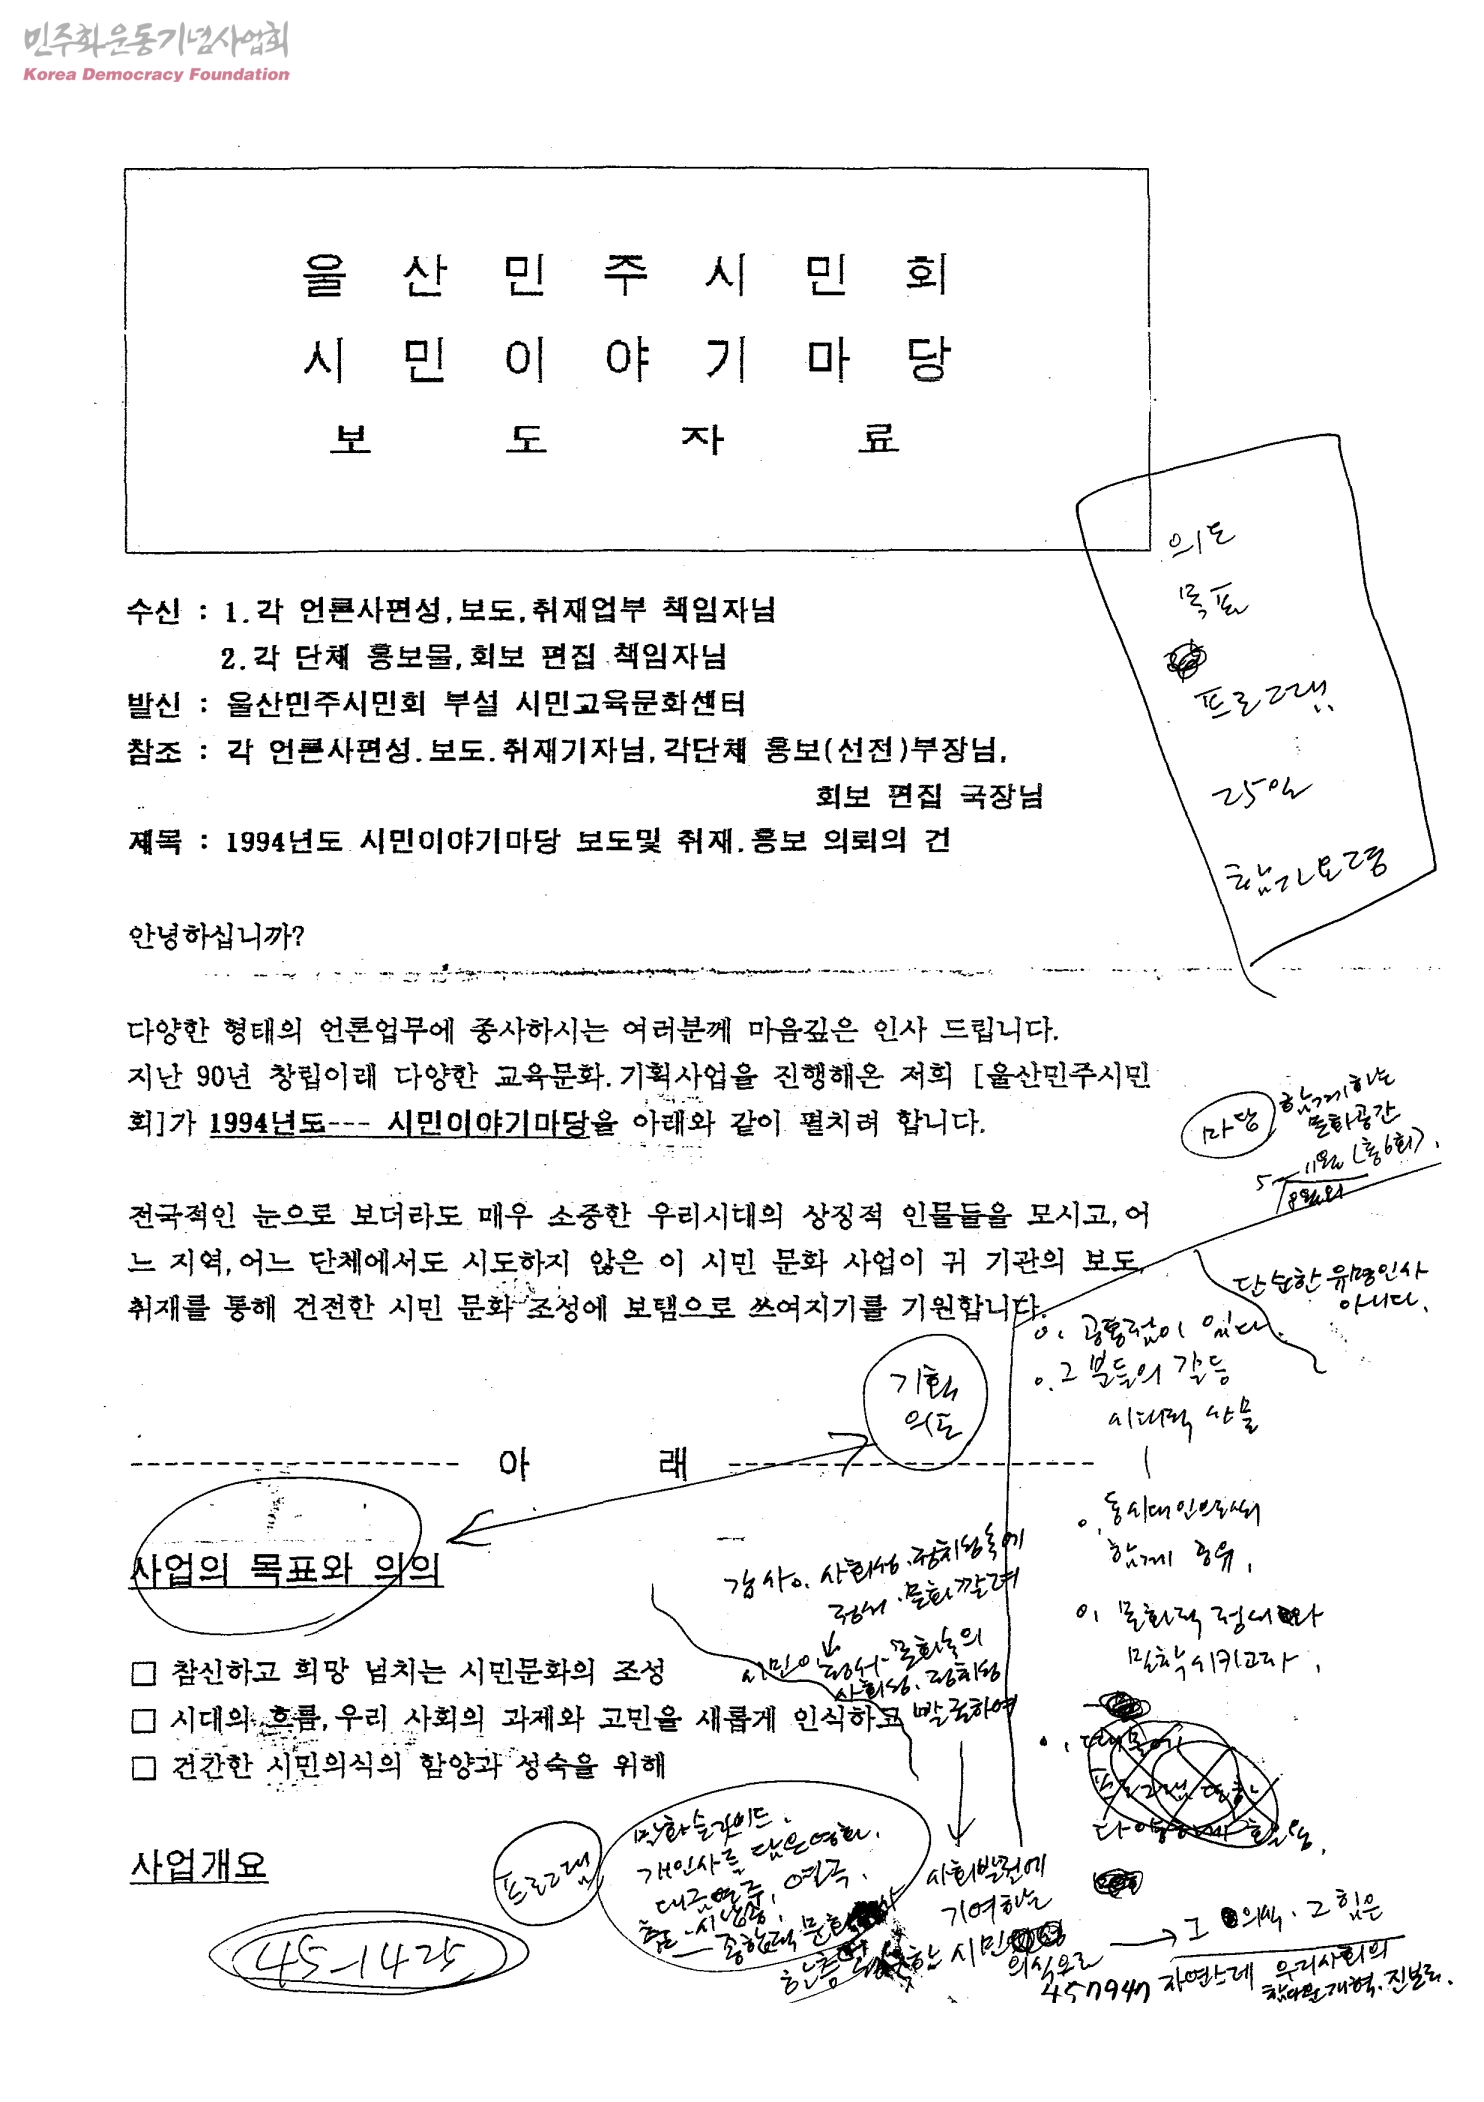 민주화운동기념사업회
Korea Democracy Foundation
울 산 민 주 시 민 회
시 민 이 야 기 마 당
보 도 자 료
의도
목표
프로그램
25일
참가요령
수신 : 1.각 언론사편성,보도,취재업부 책임자님
2.각 단체 홍보물,회보 편집 책임자님
발신 : 울산민주시민회 부설 시민교육문화센터
참조 : 각 언론사편성.보도.취재기자님,각단체 홍보(선전)부장님,
회보 편집 국장님
제목 : 1994년도 시민이야기마당 보도및 취재.홍보 의뢰의 건
안녕하십니까?
다양한 형태의 언론업무에 종사하시는 여러분께 마음깊은 인사 드립니다.
지난 90년 창립이래 다양한 교육문화.기획사업을 진행해온 저희 [울산민주시민
회]가 1994년도--- 시민이야기마당을 아래와 같이 펼치려 합니다.
마당
함께하는
문화공간
5~11월 (총6회).
8월외
전국적인 눈으로 보더라도 매우 소중한 우리시대의 상징적 인물들을 모시고,어
느 지역,어느 단체에서도 시도하지 않은 이 시민 문화 사업이 귀 기관의 보도,
취재를 통해 건전한 시민 문화 조성에 보탬으로 쓰여지기를 기원합니다.
단순한 유명인사
아니다.
공통점이 있다.
그 분들의 갈등
시대적 산물
기획
의도
------------------- 아 래 ---------------------
동시대인으로서
함께 공유,
문화적 정서와
밀착시키고자,
사업의 목표와 의의
강사 사회성.정치성속에
정서.문화 깔려
시민이 정서.문화속의
사회성.정치성
발로하여
□ 참신하고 희망 넘치는 시민문화의 조성
□ 시대의 흐름,우리 사회의 과제와 고민을 새롭게 인식하고
□ 건간한 시민의식의 함양과 성숙을 위해
프로그램 또한
다양하게
사업개요
프로그램
만화슬라이드,
개인사를 담은영화,
대금연주, 연극,
춤.시낭송,
종합적 문화
사회발전에
기여하는
시민
의식으로
그 의식.그 힘은
자연스레 우리사회의
참다운 개혁.진보로.
45-1425
457947